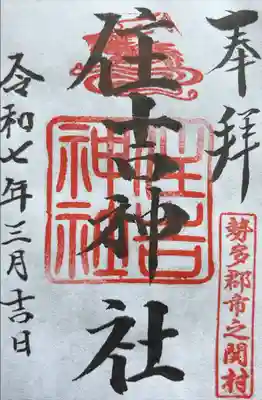 奉拝
勢多郡市之関村
住吉神社
住吉
神社
令和七年三月吉日